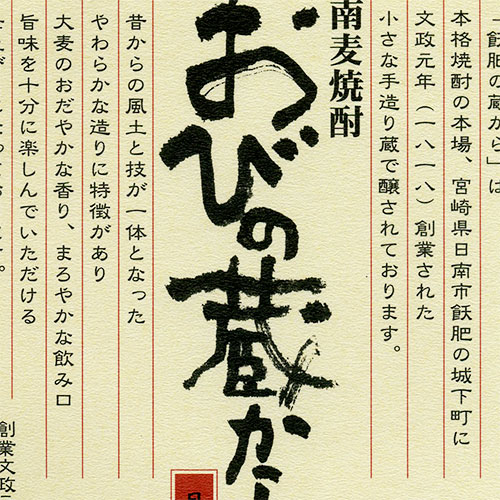 「飫肥の蔵から」は
本格焼酎の本場、宮崎県日南市飫肥の城下町に
文政元年(一八一八)創業された
小さな手造り蔵で醸されております。
南麦焼酎
おびの蔵から
昔からの風土と技が一体となった
やわらかな造りに特徴があり
大麦のおだやかな香り、まろやかな飲み口
旨味を十分に楽しんでいただける
創業文政元